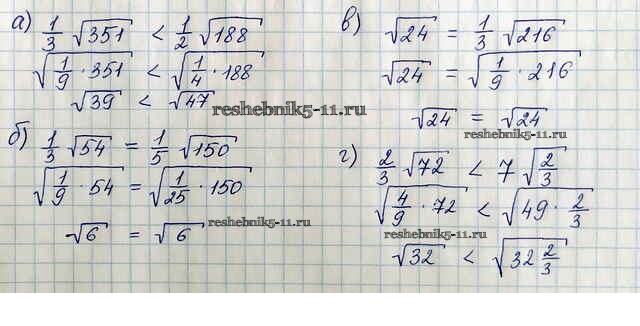 а) 1/3 √351 < 1/2 √188
√(1/9 · 351) < √(1/4 · 188)
√39 < √47
reshebnik5-11.ru
б) 1/3 √54 = 1/5 √150
√(1/9 · 54) = √(1/25 · 150)
√6 = √6
reshebnik5-11.ru
в) √24 = 1/3 √216
√24 = √(1/9 · 216)
√24 = √24
reshebnik5-11.ru
г) 2/3 √72 < 7 √(2/3)
√(4/9 · 72) < √(49 · 2/3)
reshebnik5-11.ru
√32 < √(32 2/3)